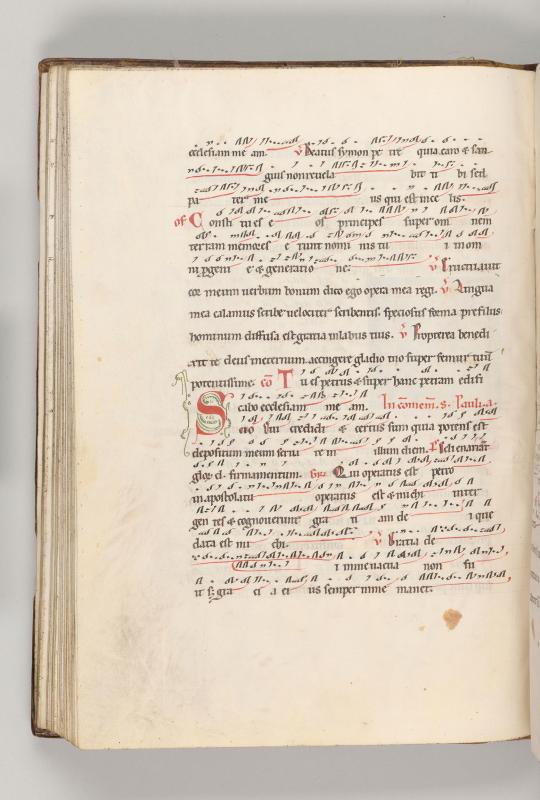 ecclesiam me am. v Beatus symon pe tre quia caro & san
guis non reuela bit ti bi sed
pa ter me us qui est in ce lis.
of Consti tu es e os principes super om nem
terram memores e runt nomi nis tu i in om
ni progeni e & generatio ne. v Eructauit
cor meum uerbum bonum dico ego opera mea regi. v Lingua
mea calamus scribe uelociter scribentis. speciosus forma pre filiis
hominum diffusa est gratia in labiis tuis. v Propterea benedi
xit te deus in eternum accingere gladio tuo super femur tuum
potentissime. co Tu es petrus & super hanc petram edifi
cabo ecclesiam me am. In comem. s. Pauli. a.
Scio cui credidi & certus sum quia potens est
depositum meum serua re in illum diem. Ps Celi enarrant
glori. d. firmamentum. Gr. Qui operatus est petro
in apostolatu operatus est & michi inter
gen tes & cognouerunt gra ti am de i que
data est mi chi. v Gratia de
i in me uacua non fu
it s; gra ci a ei us semper in me manet.